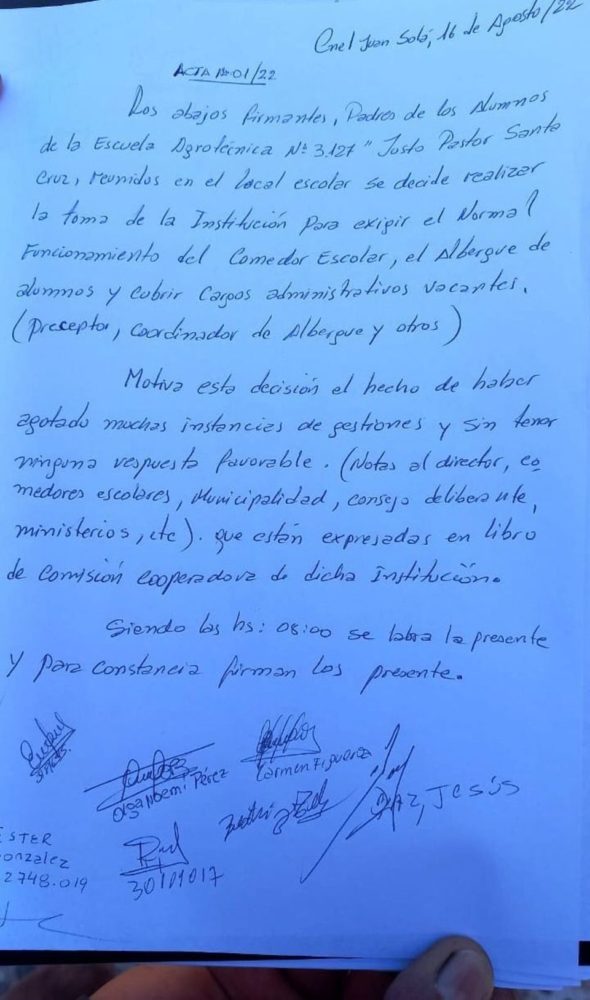 Cnel Juan Solá, 16 de Agosto/22
ACTA Nº 01/22
Los abajos firmantes, Padres de los Alumnos
de la Escuela Agrotécnica Nº 3.127 "Justo Pastor Santa
Cruz, reunidos en el local escolar se decide realizar
la toma de la Institución para exigir el Normal
Funcionamiento del Comedor Escolar, el Albergue de
alumnos y cubrir cargos administrativos vacantes.
(preceptor, coordinador de Albergue y otros)
Motiva esta decisión el hecho de haber
agotado muchas instancias de gestiones y sin tener
ninguna respuesta favorable. (Notas al director, co
medores escolares, Municipalidad, consejo deliberante,
ministerios, etc). que están expresadas en libro
de Comisión cooperadora de dicha Institución.
Siendo las hs: 08:00 se labra la presente
y para constancia firman los presente.
Carmen Figueroa
Olga Noemi Pérez
Diaz, Jesús
ESTER
onzalez
2748.019